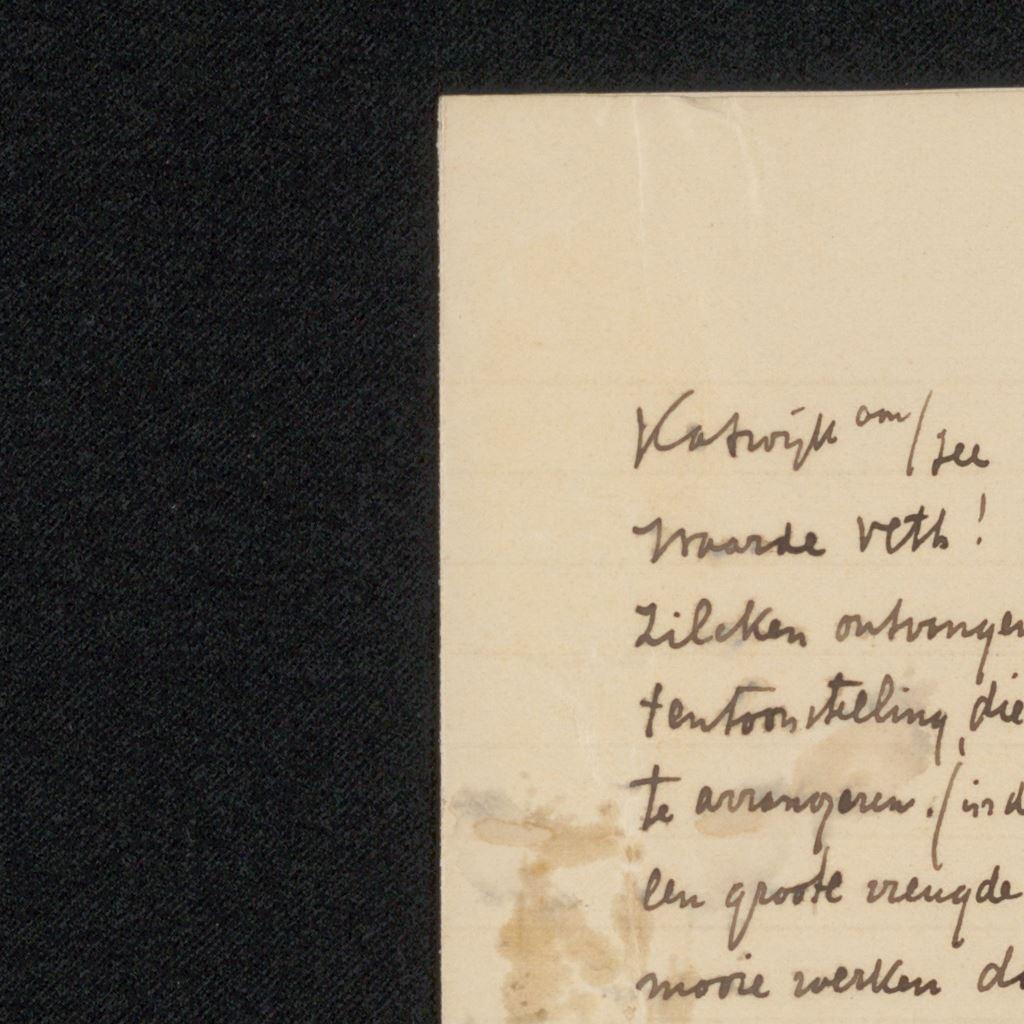 Katwijk aan/zee
Waarde Veth!
Zilcken ontvangen
tentoonstelling, die
te arrangeren. (in d
een groote vreugde
mooie werken da